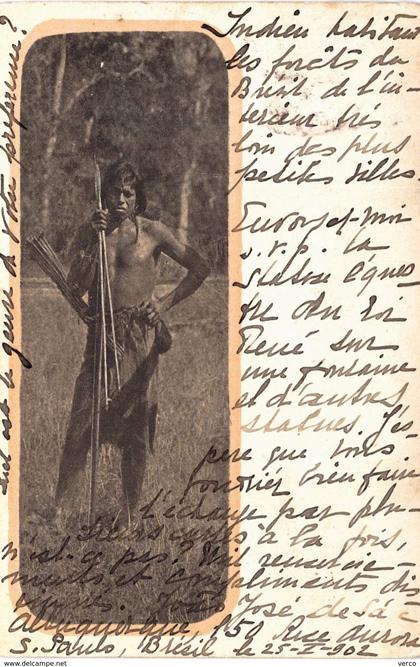 Indien habitant
les forêts du
Brésil de l'in-
térieur très
loin des plus
petites villes.
Envoyez-moi
s.v.p. la
statue éques-
tre du roi
René sur
une fontaine
et d'autres
statues. J'es-
père que vous
voudrez bien faire
l'échange par plu-
sieurs cartes à la fois,
n'est-ce pas? Mil remercie-
ments et compliments des
José de Sá-
Albuquerque, 150 Rue
S. Paulo, Brésil 25-X-902
est le genre de votre préférence?